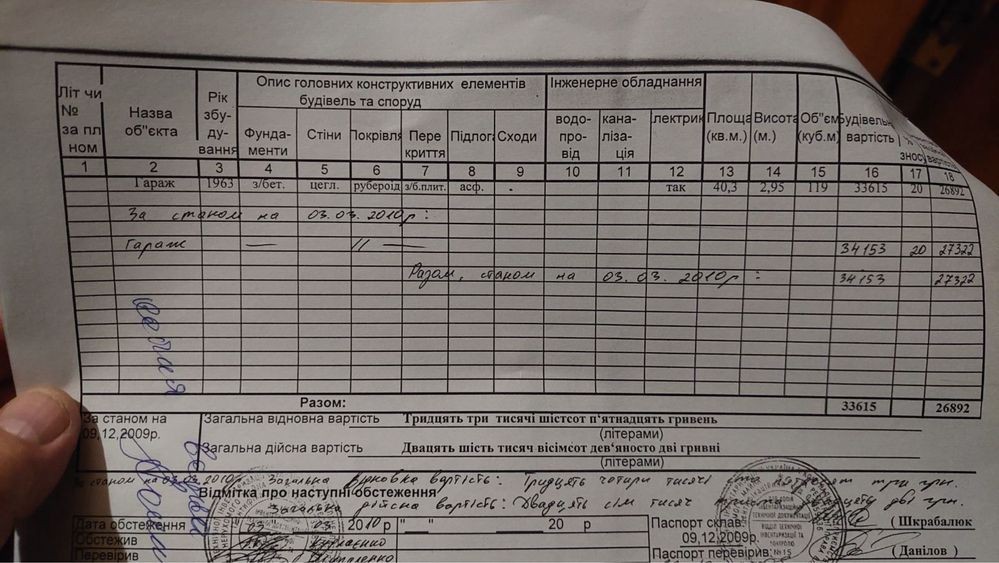 Літ чи № за пл ном
Назва об"єкта
Рік збу- ду- вання
Опис головних конструктивних елементів будівель та споруд
Фунда- менти
Стіни
Покрівля
Пере криття
Підлога
Сходи
Інженерне обладнання
водо- про- від
кана- ліза- ція
лектрик
Площа (кв.м.)
Висота (м.)
Об"єм (куб.м)
Будівельн вартість
% зносу
вартість
1 2 3 4 5 6 7 8 9 10 11 12 13 14 15 16 17 18
Гараж 1963 з/бет. цегл. рубероїд з/б.плит. асф. - так 40,3 2,95 119 33615 20 26892
За станом на 03.03.2010р:
Гараж — // — 34153 20 27322
Разом, станом на 03.03.2010р: 34153 27322
Разом: 33615 26892
За станом на 09,12,2009р.
Загальна відновна вартість Тридцять три тисячі шістсот п'ятнадцять гривень
(літерами)
Загальна дійсна вартість Двацять шість тисяч вісімсот дев'яносто дві гривні
(літерами)
станом на 03.03.2010 Загальна вартість: Тридцять чотири тисячі сто три грн.
Відмітка про наступні обстеження
Загальна дійсна вартість: Двадцять сім тисяч дві грн.
Дата обстеження 03 03 2010 р " " 20 р
Обстежив
Перевірив
Паспорт склав: ( Шкрабалюк
09,12,2009р.
Паспорт перевірив: ( Данілов )
копія